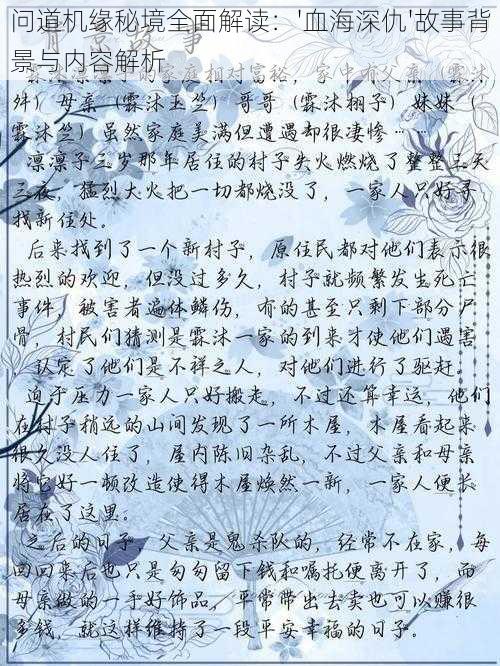 问道机缘秘境全面解读：'血海深仇'故事背
景与内容解析
家庭相对富裕，家中有父亲（霖沐
舛）母亲（霖沐玉竺）哥哥（霖沐栩予）妹妹（
霖沐竺）虽然家庭美满但遭遇却很凄惨……
凛凛子三岁那年居住的村子失火燃烧了整整三天
三夜，猛烈大火把一切都烧没了，一家人只好寻
找新住处。
后来找到了一个新村子，原住民都对他们表示很
热烈的欢迎，但没过多久，村子就频繁发生死亡
事件，被害者遍体鳞伤，有的甚至只剩下部分尸
骨，村民们猜测是霖沐一家的到来才使他们遇害
，认定了他们是不祥之人，对他们进行了驱赶。
迫于压力一家人只好搬走，不过还算幸运，他们
在村子稍远的山间发现了一所木屋，木屋看起来
很久没人住了，屋内陈旧杂乱，不过父亲和母亲
将它好一顿改造使得木屋焕然一新，一家人便长
居在了这里。
之后的日子，父亲是鬼杀队的，经常不在家，每
回回来后也只是匆匆留下钱和嘱托便离开了，而
母亲做的一手好饰品，平常带出去卖也可以赚很
多钱，就这样维持了一段平安幸福的日子。